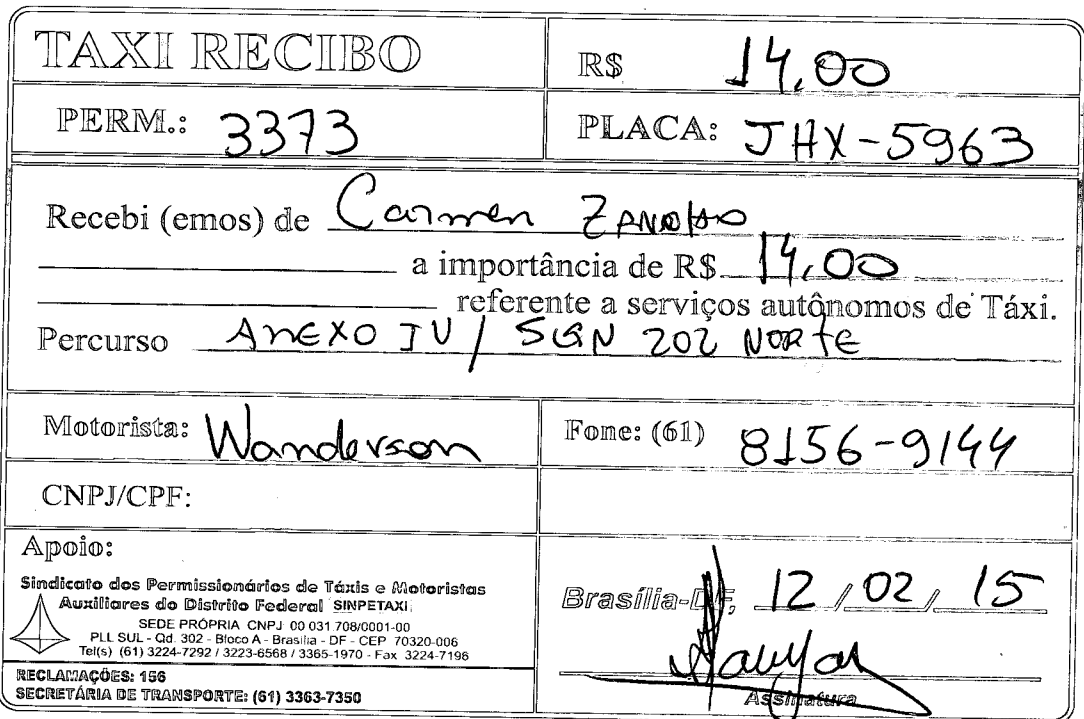 TAXI RECIBO
R$ 14,00
PERM.: 3373
PLACA: JHX-5963
Recebi (emos) de Carmen
a importância de R$ 14,00
referente a serviços autônomos de Táxi.
Percurso ANEXO IV / SQN 202 NORTE
Motorista: Wanderson
Fone: (61) 8156-9144
CNPJ/CPF:
Apoio:
Sindicato dos Permissionários de Táxis e Motoristas
Auxiliares do Distrito Federal SINPETAXI
SEDE PRÓPRIA CNPJ 00 031 708/0001-00
PLL SUL - Qd. 302 - Bloco A - Brasília - DF - CEP 70320-006
Tel(s) (61) 3224-7292 / 3223-6568 / 3365-1970 - Fax 3224-7196
RECLAMAÇÕES: 156
SECRETÁRIA DE TRANSPORTE: (61) 3363-7350
Brasília-DF, 12 / 02 / 15
Assinatura